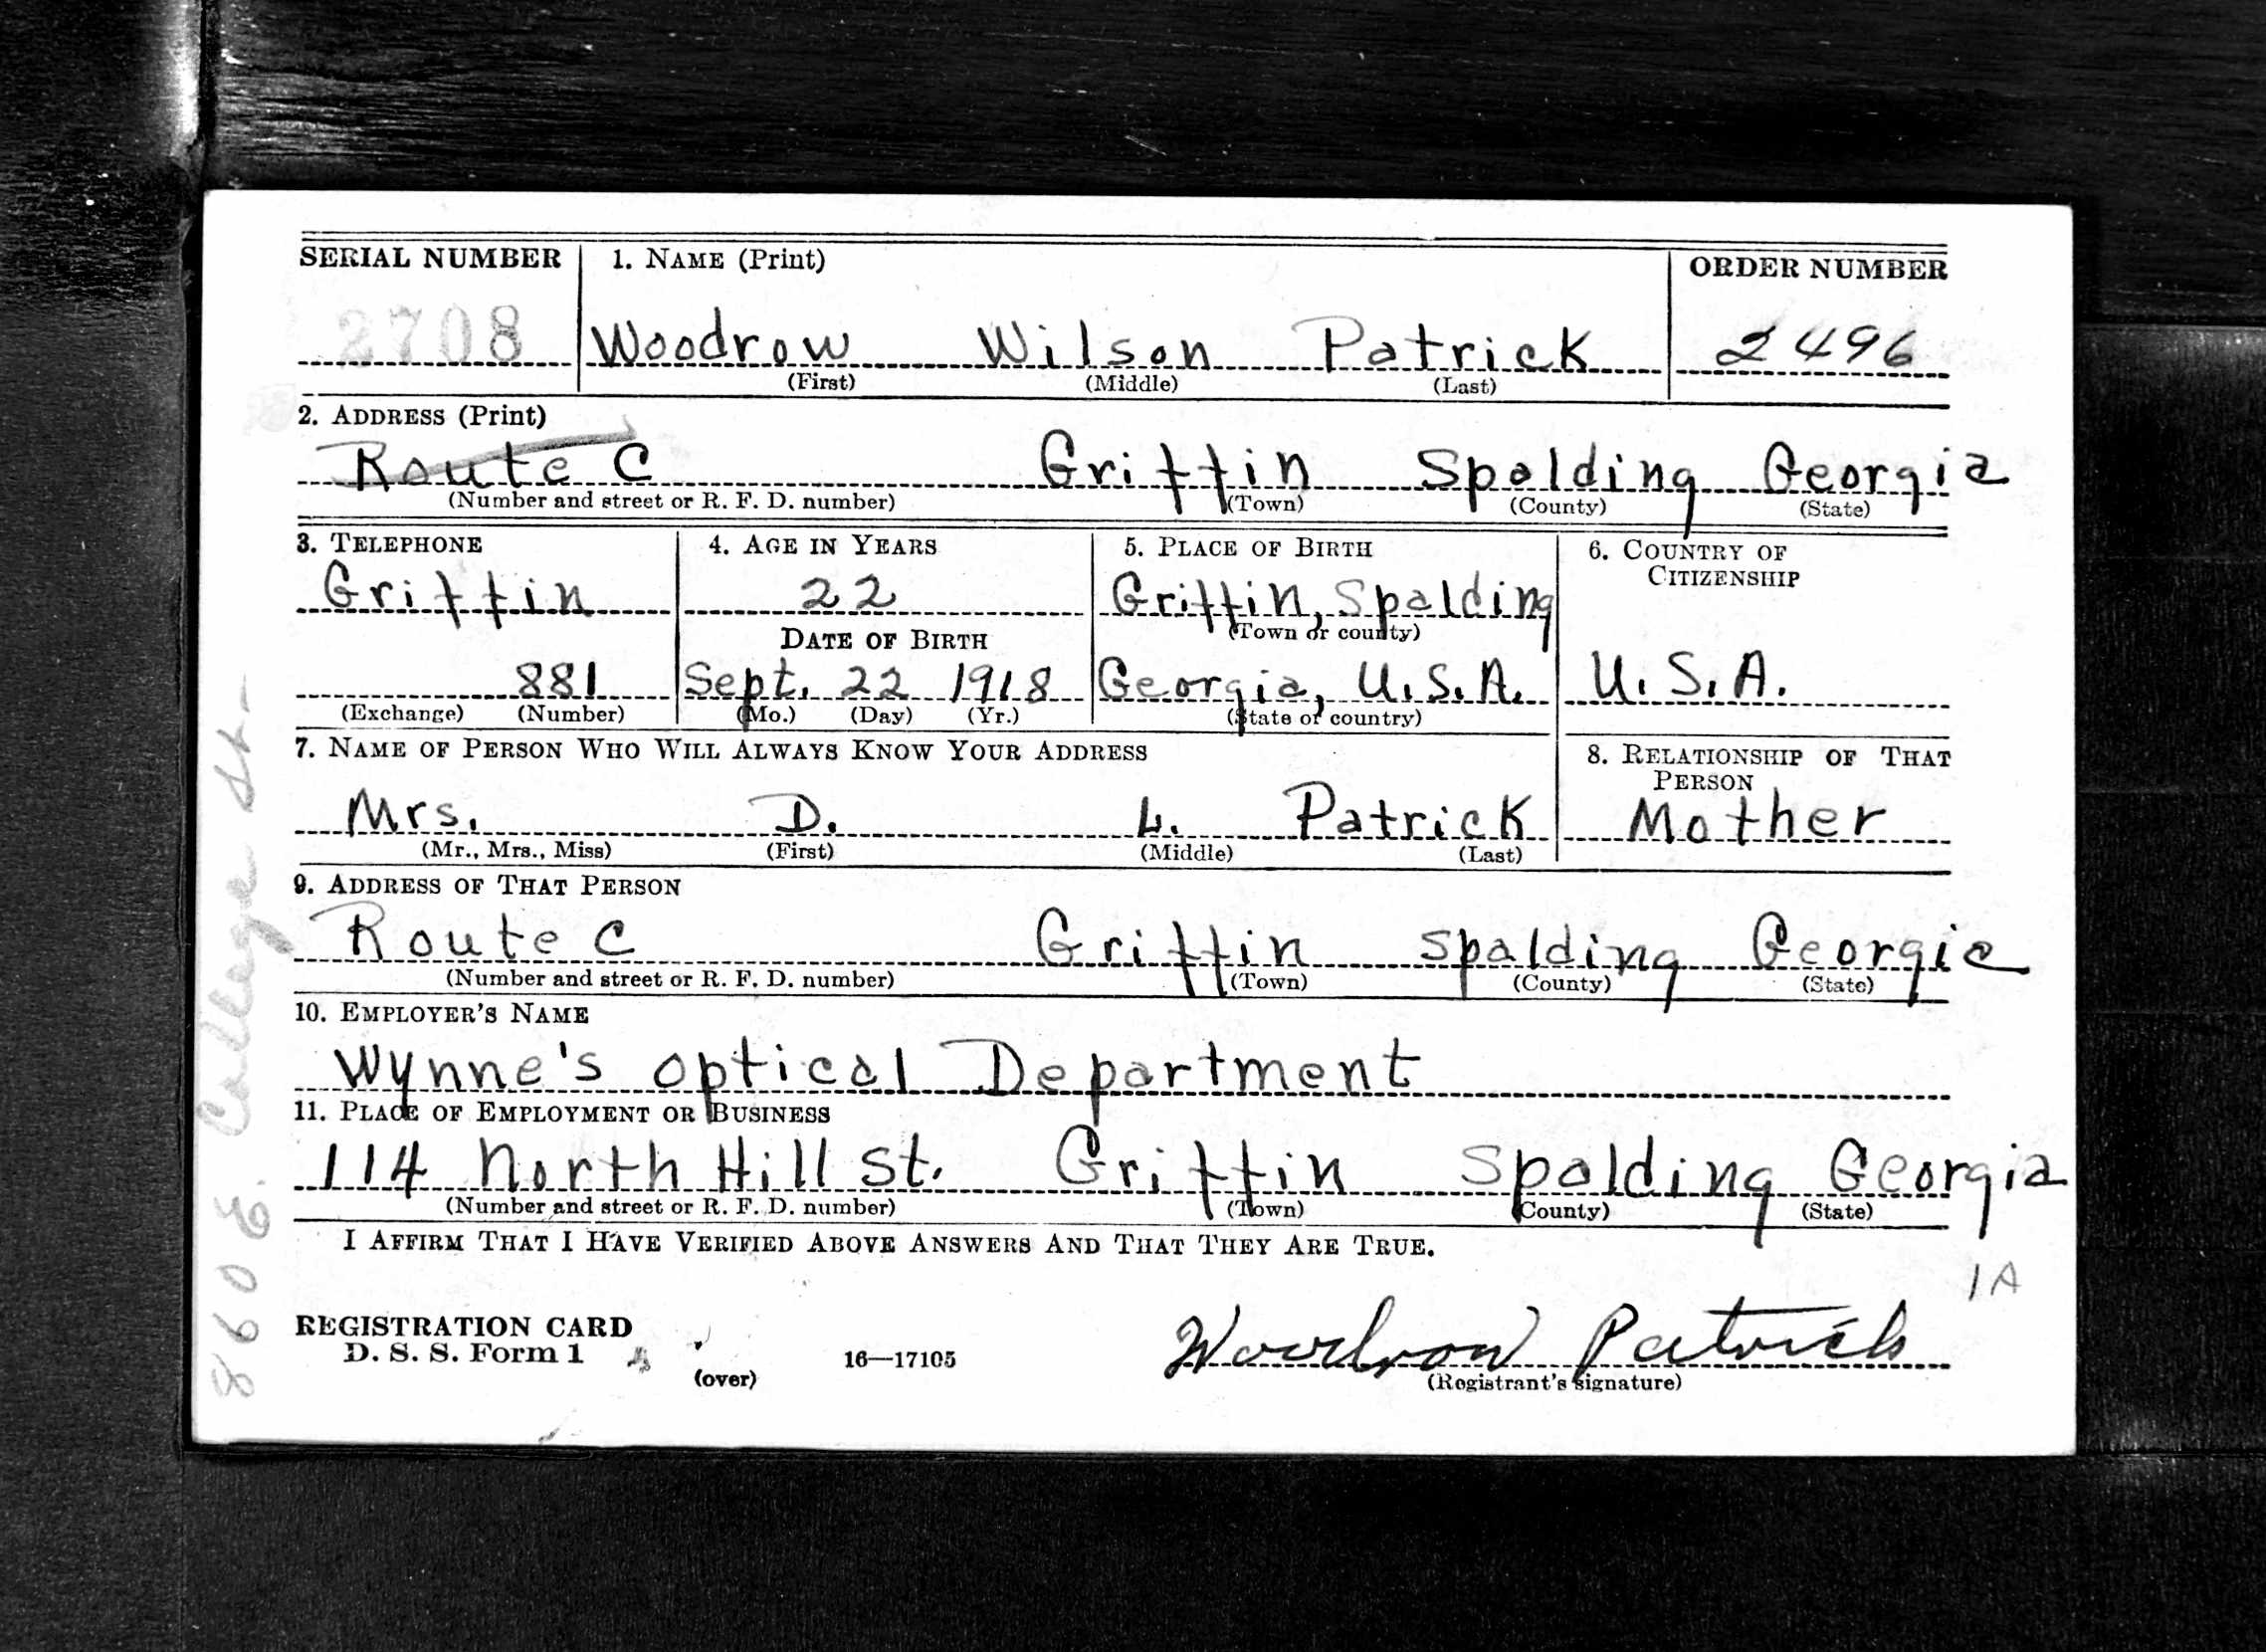 SERIAL NUMBER 1. NAME (Print) ORDER NUMBER
2708 Woodrow Wilson Patrick 2496
(First) (Middle) (Last)
2. ADDRESS (Print)
Route C Griffin Spalding Georgia
(Number and street or R. F. D. number) (Town) (County) (State)
3. TELEPHONE 4. AGE IN YEARS 5. PLACE OF BIRTH 6. COUNTRY OF
CITIZENSHIP
Griffin 22 Griffin, Spalding
DATE OF BIRTH (Town or county)
881 Sept. 22 1918 Georgia, U.S.A. U.S.A.
(Exchange) (Number) (Mo.) (Day) (Yr.) (State or country)
7. NAME OF PERSON WHO WILL ALWAYS KNOW YOUR ADDRESS 8. RELATIONSHIP OF THAT
PERSON
Mrs. D. L. Patrick Mother
(Mr., Mrs., Miss) (First) (Middle) (Last)
9. ADDRESS OF THAT PERSON
Route C Griffin Spalding Georgia
(Number and street or R. F. D. number) (Town) (County) (State)
10. EMPLOYER'S NAME
Wynne's Optical Department
11. PLACE OF EMPLOYMENT OR BUSINESS
114 North Hill St. Griffin Spalding Georgia
(Number and street or R. F. D. number) (Town) (County) (State)
I AFFIRM THAT I HAVE VERIFIED ABOVE ANSWERS AND THAT THEY ARE TRUE.
1A
REGISTRATION CARD
D. S. S. Form 1 (over) 16—17105 Woodrow Patrick
(Registrant's signature)
860 E. College St.